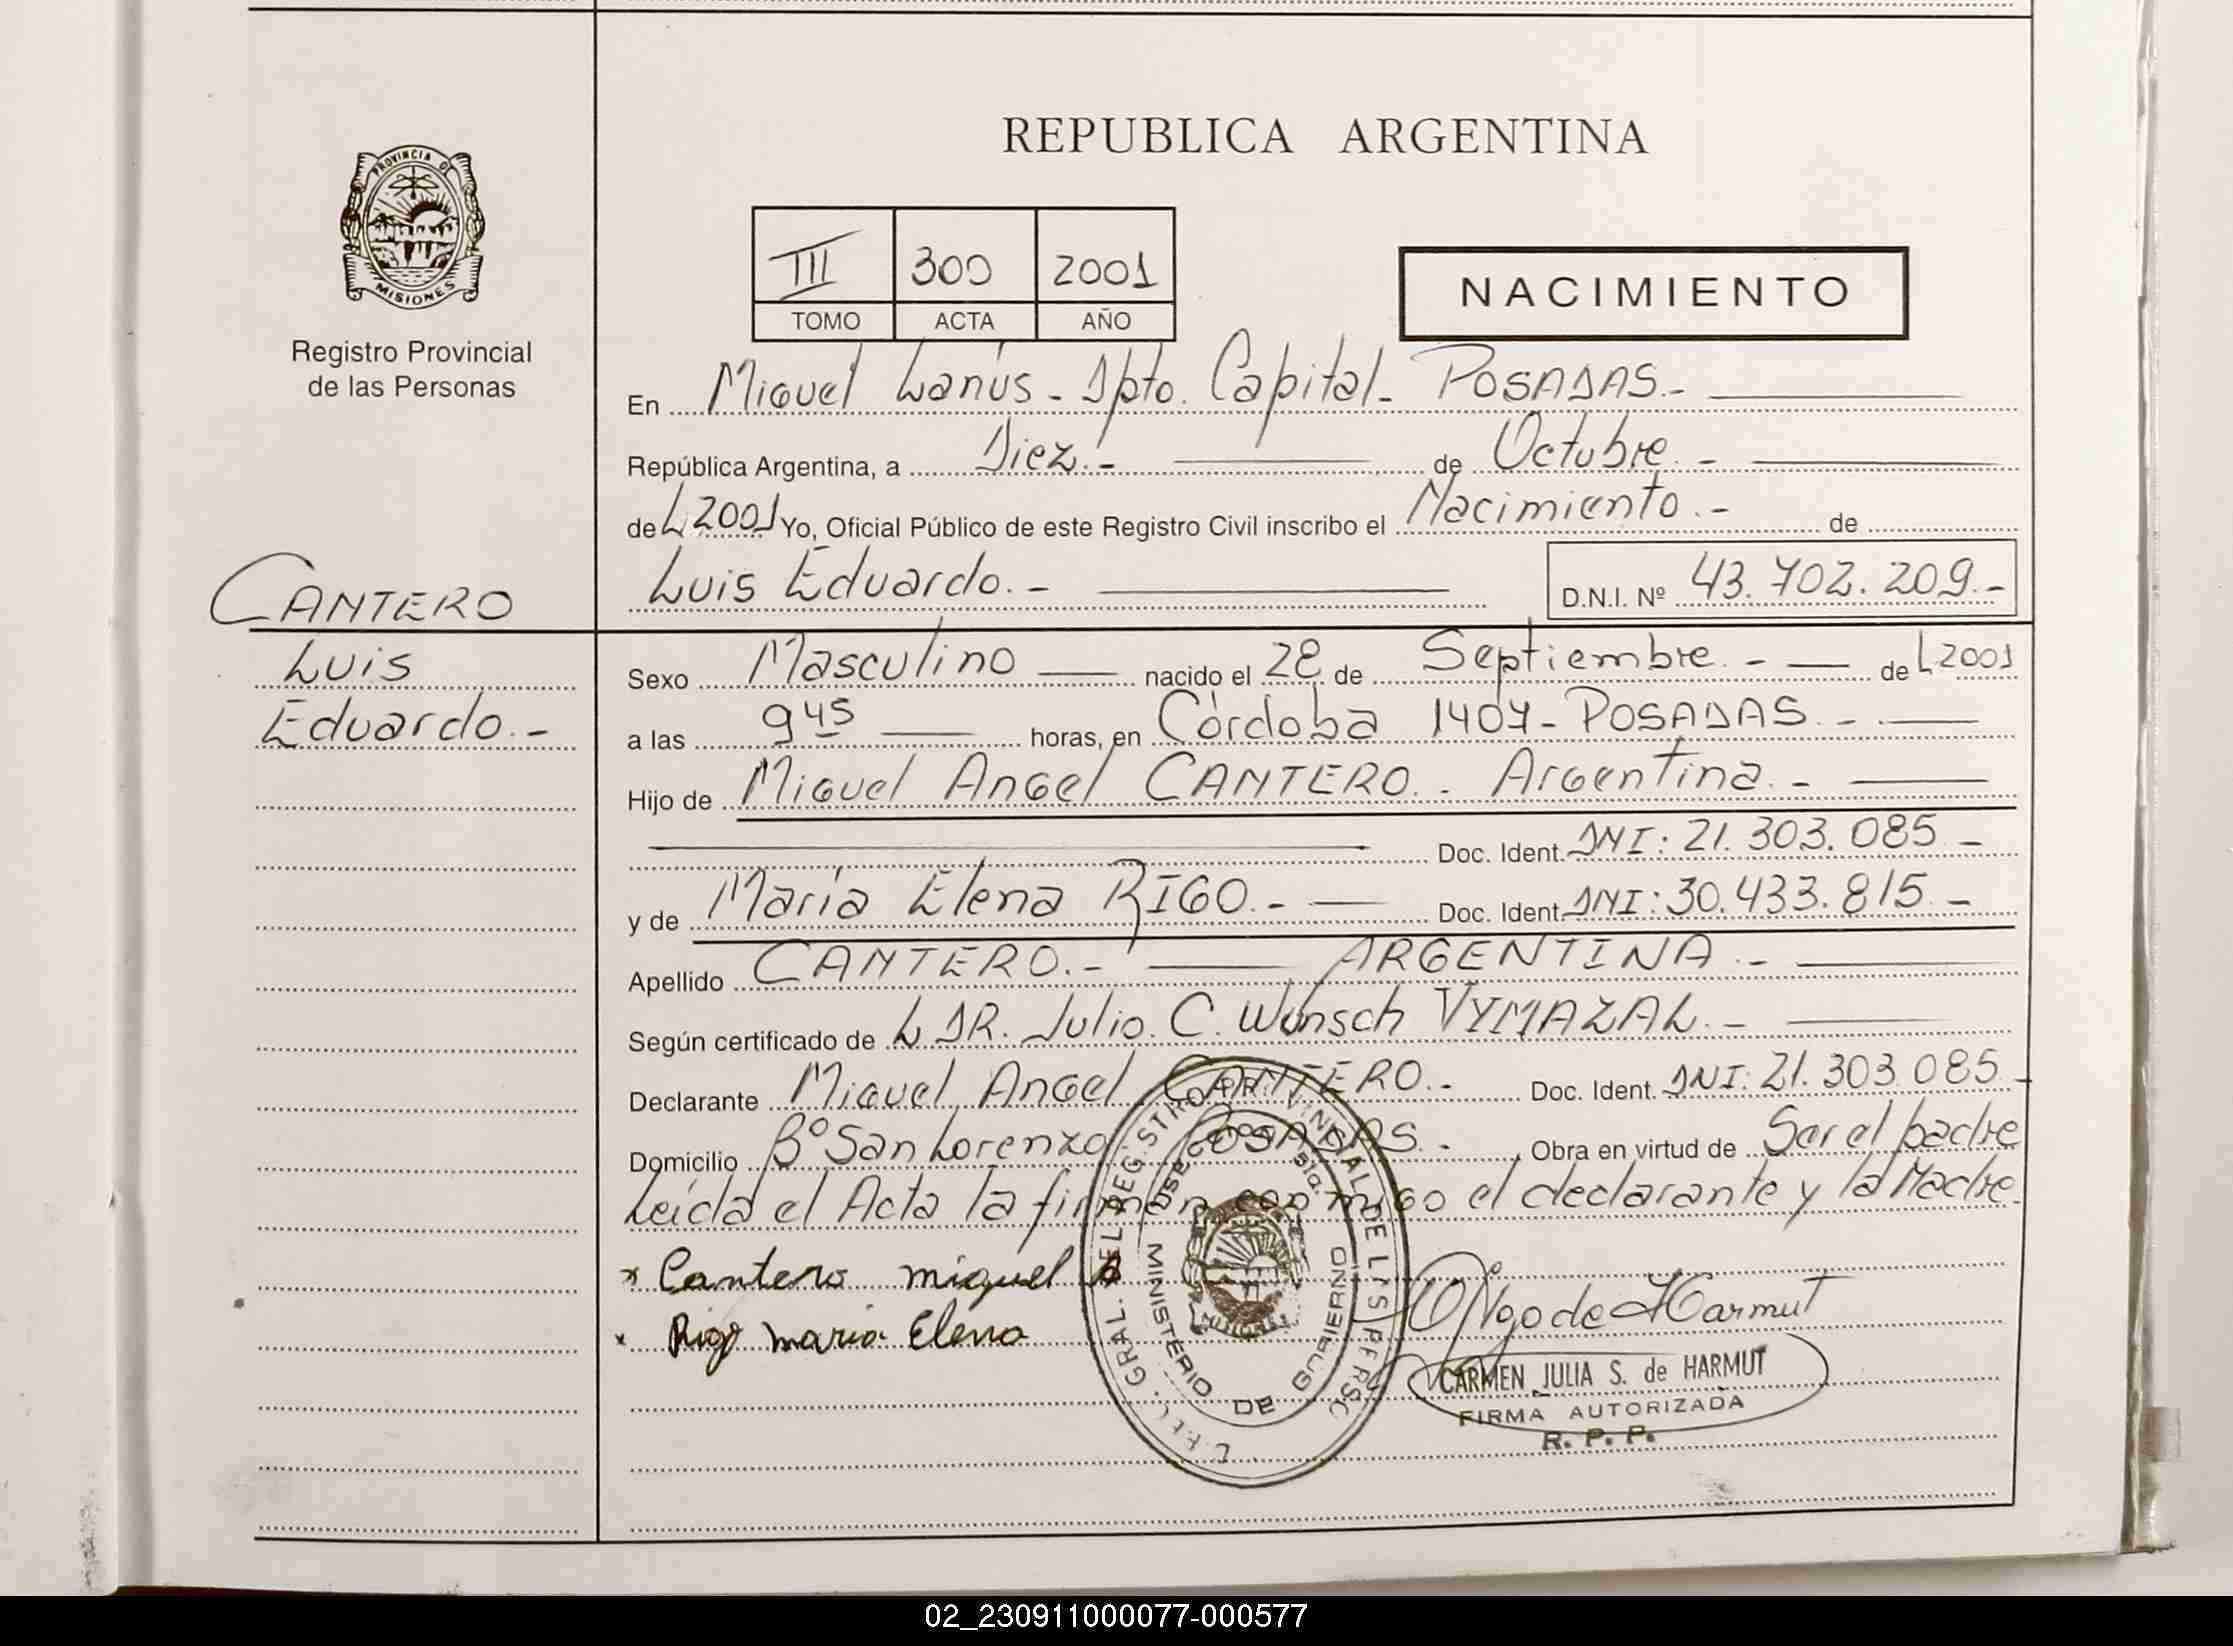 PROVINCIA DE
MISIONES
Registro Provincial
de las Personas
REPUBLICA ARGENTINA
III 300 2001
TOMO ACTA AÑO
NACIMIENTO
En Miguel Lanús - Dpto. Capital - POSADAS.-
República Argentina, a Diez.- de Octubre.-
de L 2001 Yo, Oficial Público de este Registro Civil inscribo el Nacimiento.- de
Luis Eduardo.- D.N.I. Nº 43.702.209.-
CANTERO
Luis
Eduardo.-
Sexo Masculino nacido el 28 de Septiembre.- de L 2001
a las 9 45 horas, en Córdoba 1407 - POSADAS.-
Hijo de Miguel Angel CANTERO.- Argentina.-
Doc. Ident. DNI: 21.303.085.-
y de María Elena RIGO.- Doc. Ident. DNI: 30.433.815.-
Apellido CANTERO.- ARGENTINA.-
Según certificado de L DR. Julio C. Wünsch VYMAZAL.-
Declarante Miguel Angel CANTERO.- Doc. Ident. DNI: 21.303.085.-
Domicilio Bº San Lorenzo POSADAS.- Obra en virtud de Ser el padre
Leída el Acta la firman conmigo el declarante y la Madre.
x Cantero miguel A
x Rigo maria Elena
MINISTERIO DE GOBIERNO
MISIONES
de Harmut
CARMEN JULIA S. de HARMUT
FIRMA AUTORIZADA
R. P. P.
02_230911000077-000577